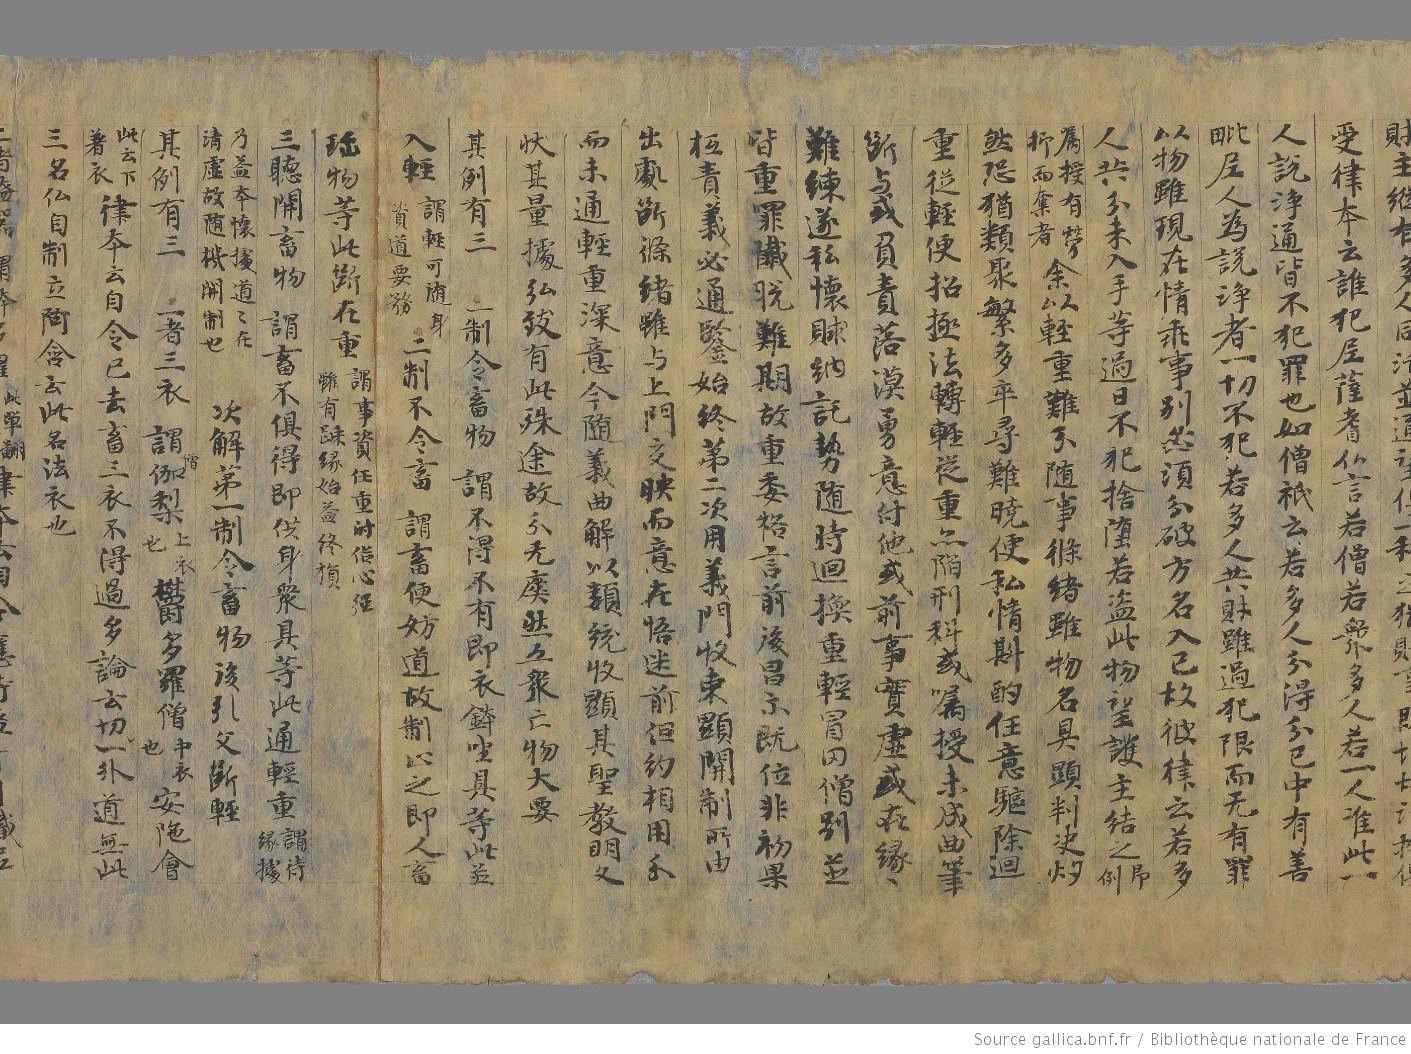 受律本云誰犯尼薩耆仏言若僧若衆多人若一人准此一
人說淨通皆不犯罪也如僧祇云若多人分得分已中有善
毗尼人為說淨者一切不犯若多人共財雖過犯限而无有罪
以物雖現在情乖事別必須分破方名入已故彼律云若多
人共分未入手等過日不犯捨墮若盜此物望護主結之即例
属授有勞
折而奪者
余以輕重難分随事條緒雖物名具顯判决灼
然恐猶類聚繁多卒尋難曉便私情斟酌任意驅除迴
重從輕便招極法轉輕從重亦陷刑科或嘱授未成曲筆
斷与或負責落漠勇意付他或前事實虛或在緣
難練遂私懷賕納託勢随時迴換重輕冒罔僧別並
皆重罪懺脫難期故重委格言前後昌示既位非初果
極青義必通鑒始終第二次用義門收束顯開制所由
出處斷條緒雖与上門文映而意在悟迷前但約相用分
而未通輕重深意今随義曲解以類統收顯其聖教明文
狀其量據弘致有此殊途故分无疾然五衆亡物大要
其例有三 一制令畜物 謂不得不有即衣鉢坐具等此並
入輕 謂輕可随身
資道要務 二制不令畜 謂畜便妨道故制止之即人畜
珎物等此斷在重 謂事資任重
雖有踈緣始益終損
三聽開畜物 謂畜不俱得即供身衆具等此通輕重 謂待
緣據
乃益本懷據道之在
清虛故随機開制也 次解第一制令畜物後引文斷輕
其例有三 一者三衣 謂僧伽梨上衣也 欝多羅僧中衣也 安陁會
此云下
著衣 律本云自今已去畜三衣不得過多論云一切外道無此
三名仏自制立阿含云此名法衣也